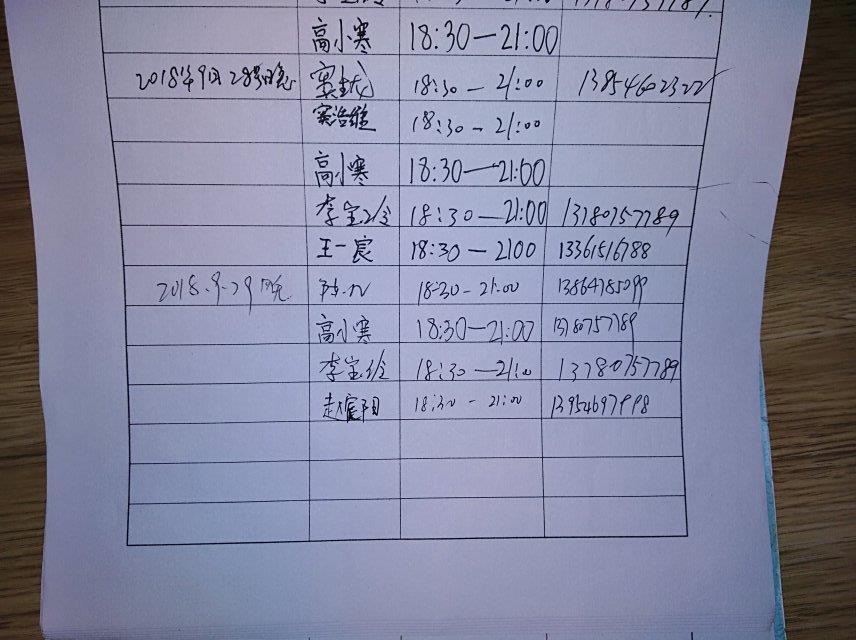 高小寒 18:30—21:00
2018年9月28号晚 18:30 - 21:00 13854602322
窦浩维 18:30 - 21:00
高小寒 18:30—21:00
李宝玲 18:30—21:00 13780757789
王一宸 18:30—2100 13361516788
2018.9.29晚 18:30-21:00 13864785099
高小寒 18:30—21:00 13780757789
李宝玲 18:30—21:00 13780757789
赵宦阳 18:30 - 21:00